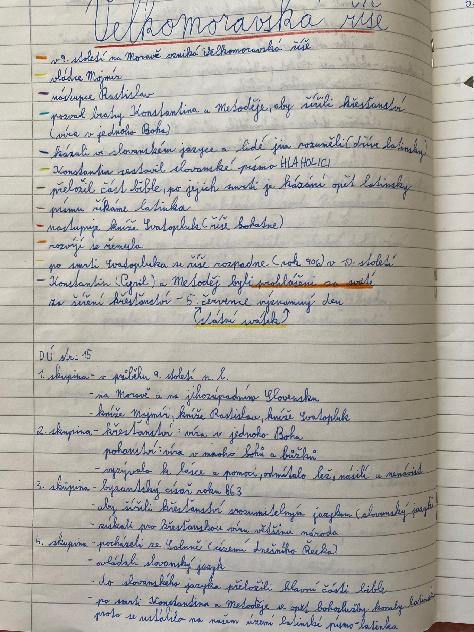 Velkomoravská říše
- v 9. století na Moravě vzniká Velkomoravská říše
- vládce Mojmír
- nástupce Rastislav
- pozval bratry Konstantina a Metoděje, aby šířili křesťanství
(víra v jednoho Boha)
- kázali ve slovanském jazyce a lidé jim rozuměli (dříve latinsky)
- Konstantin sestavil slovanské písmo HLAHOLICI
- přeložil část bible, po jejich smrti je kázání opět latinsky
písmu říkáme latinka
- nastupuje kníže Svatopluk (říše bohatne)
- rozvíjí se řemesla
- po smrti Svatopluka se říše rozpadne (rok 906) v 10. století
- Konstantin (Cyril) a Metoděj byli prohlášeni za svaté
za šíření křesťanství - 5. července významný den
(státní svátek)
DÚ str. 15
1. skupina - v průběhu 9. století n. l.
- na Moravě a na jihozápadním Slovensku
- kníže Mojmír, kníže Rastislav, kníže Svatopluk
2. skupina - křesťanství: víra v jednoho Boha
pohanství: víra v mnoho bohů a bůžků
- vyzývalo k lásce a pomoci, odmítalo lež, násilí a nenávist
3. skupina - byzantský císař roku 863
- aby šířili křesťanství srozumitelným jazykem (slovanský jazyk)
- získali pro křesťanskou víru většinu národa
4. skupina - pocházeli ze Soluně (území dnešního Řecka)
- ovládali slovanský jazyk
- do slovanského jazyka přeložili hlavní části bible
- po smrti Konstantina a Metoděje se opět bohoslužby konaly latinsky
proto se ustálilo na našem území latinské písmo - latinka